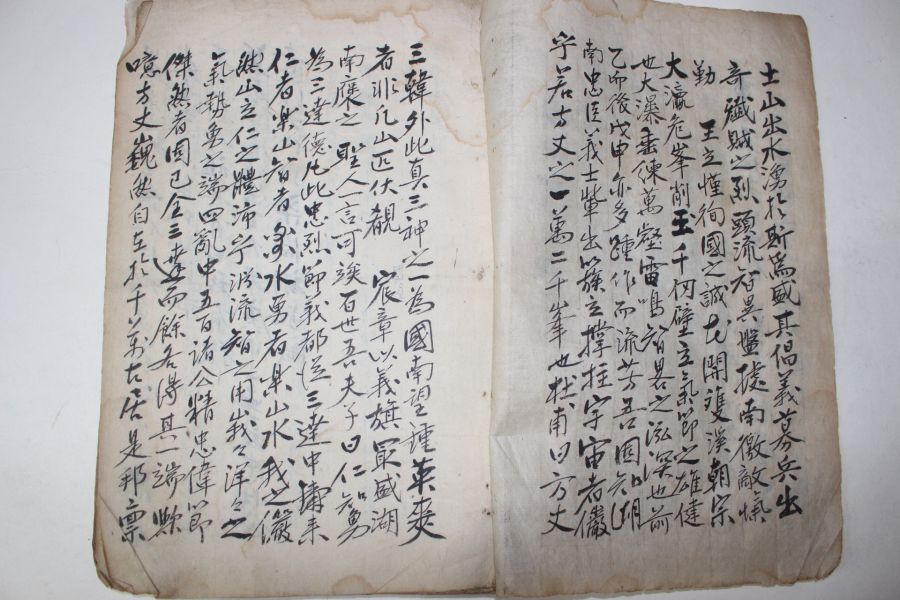 士山出水湧於斯爲盛其倡義募兵出
奇殲賊之烈頭流智異盤據南徼敵愾
勤 王立慬徇國之誠 開雙溪朝宗
大瀛危峯削玉千仞壁立氣節之雄健
也大瀑垂練萬壑雷鳴智畧之泓深也前
乙而後戊申亦多踵作而流芳 固知湖
南忠臣義士輩出以簇立撑拄宇宙者儼
乎若方丈之一萬二千峯也杜甫曰方丈
三韓外此真三神之一為國南望鍾英夾
者非凡山匹伏覩 宸章以義旗冣盛湖
南褒之 聖人一言可俟百世吾夫子曰仁知勇
為三達德凡此忠烈節義都從三達中 来
仁者楽山智者楽水勇者 山水我之儼
然山立仁之體沛乎 流智之用峩々洋々之
氣勢勇之端四亂中五百諸公精忠偉節
傑然者固已全三達而餘各得其一端縣
噫方丈巍然自在於千萬古 是邦禀